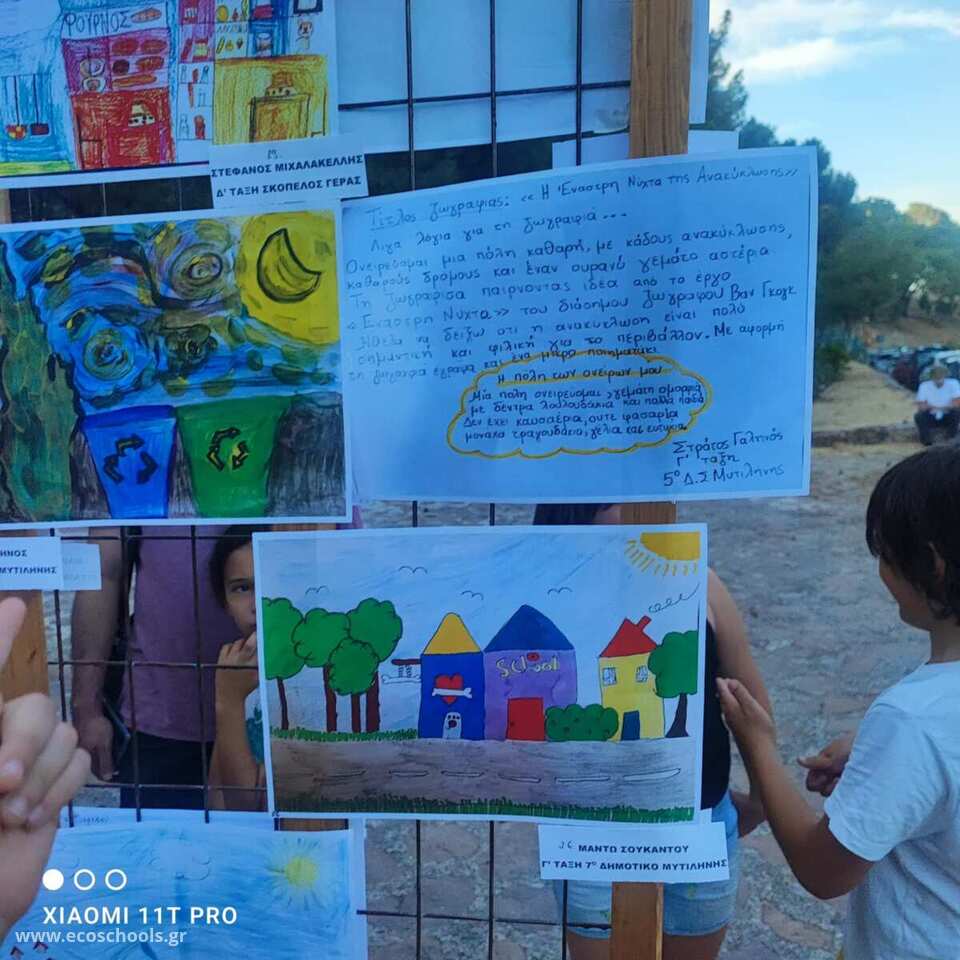 ΦΟΥΡΝΟΣ
ΣΤΕΦΑΝΟΣ ΜΙΧΑΛΑΚΕΛΛΗΣ
Δ' ΤΑΞΗ ΣΚΟΠΕΛΟΣ ΓΕΡΑΣ
Τίτλος ζωγραφιάς: «Η Έναστρη Νύχτα της Ανακύκλωσης»
Λίγα λόγια για τη ζωγραφιά...
Ονειρεύομαι μια πόλη καθαρή, με κάδους ανακύκλωσης,
καθαρούς δρόμους και έναν ουρανό γεμάτο αστέρια.
Τη ζωγράφισα παίρνοντας ιδέα από το έργο
«Έναστρη Νύχτα» του διάσημου ζωγράφου Βαν Γκογκ
Ήθελα να δείξω οτι η ανακύκλωση είναι πολύ
σημαντική και φιλική για το περιβάλλον. Με αφορμή
τη ζωγραφιά έγραψα και ένα μικρό ποιηματάκι
Η πόλη των ονείρων μου
Μία πόλη ονειρεύομαι, γεμάτη ομορφιά
με δέντρα λουλουδάκια και πολλά παιδιά
Δεν έχει καυσαέρια, ούτε φασαρία
μονάχα τραγουδάκια, γέλια και ευτυχία
Στράτος Γαληνός
Γ' τάξη
5º Δ.Σ Μυτιλήνης
ΗΝΟΣ
ΜΥΤΙΛΗΝΗΣ
School
36 ΜΑΝΤΩ ΣΟΥΚΑΝΤΟΥ
Γ' ΤΑΞΗ 7º ΔΗΜΟΤΙΚΟ ΜΥΤΙΛΗΝΗΣ
XIAOMI 11T PRO
www.ecoschools.gr